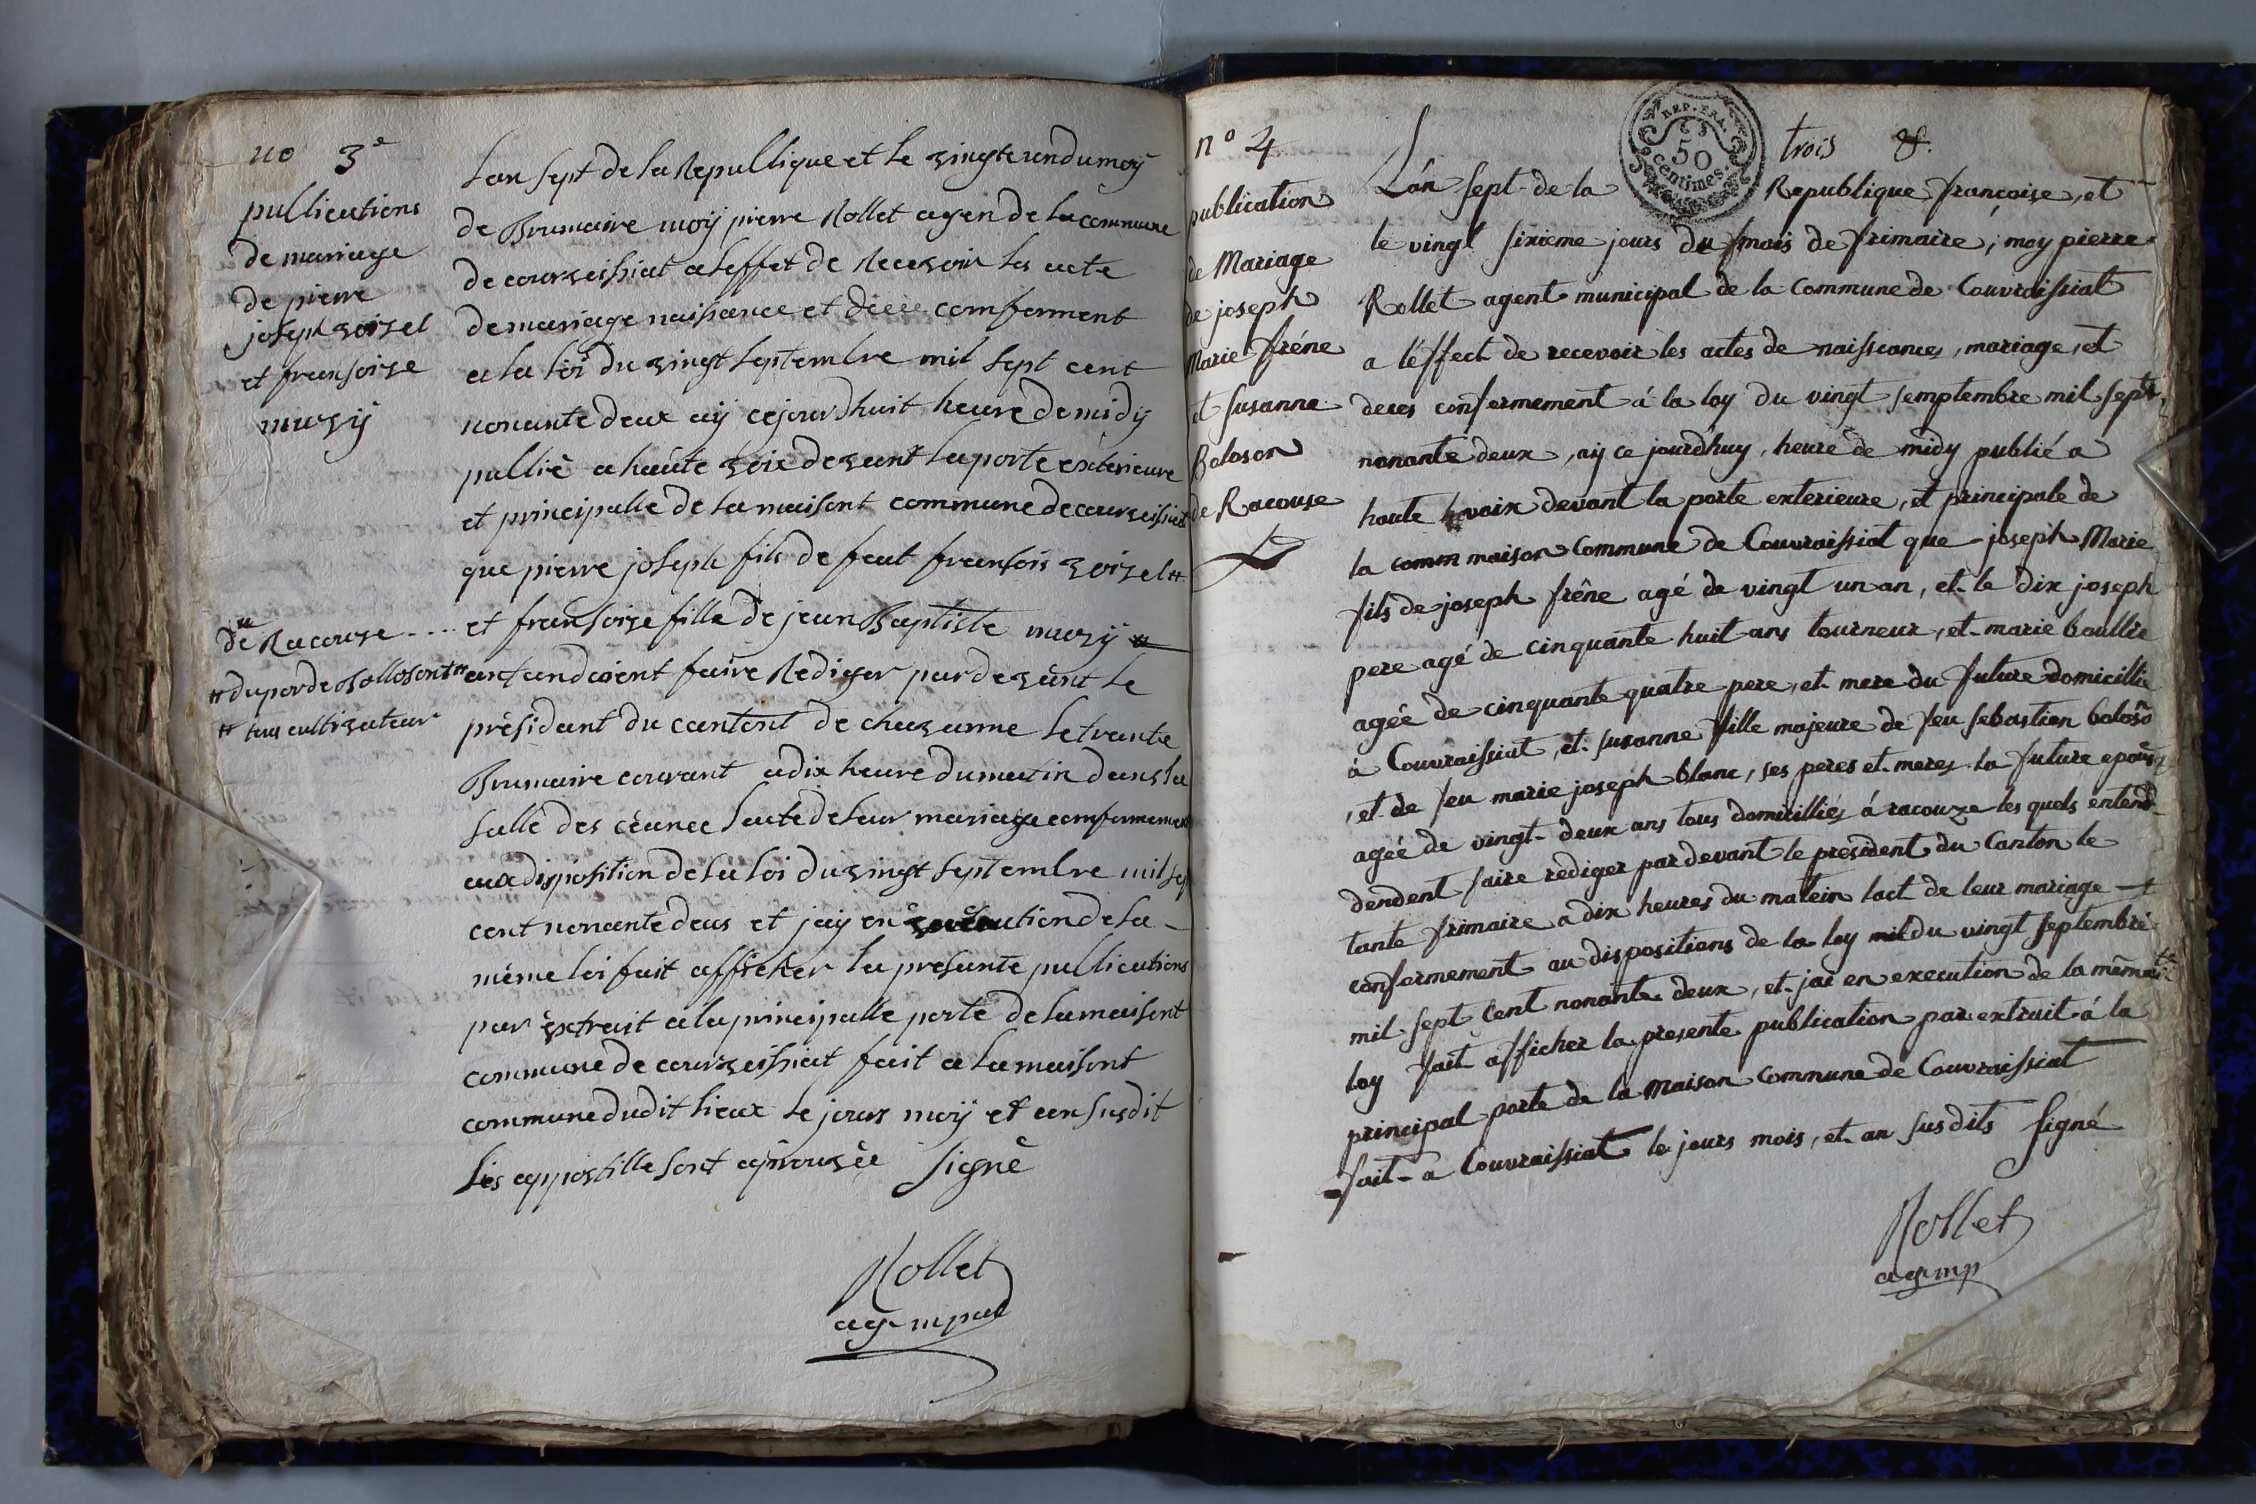 no 3e
publications
de mariage
de pierre
joseph voisel
et fransoise
muzÿ
Lan sept de la Republique et le vingte un du moÿ
de Brumaire moÿ pierre Rollet agen de la commune
de courveissiat a leffet de Recevoir les acte
de mariage naissance et décé comferment
a la loi du vingt septembre mil sept cent
nonante deux aÿ cejourdhuit heure de midÿ
publié a haute voix devant la porte exterieure
et principalle de la maisont commune de courveissiat
que pierre joseph fils de feut fransois voisel #
de Racouse .... et fransoise fille de jean Baptiste muzÿ #
# du por de Bollosont # antandoient faire Rediger par devant le
# tous cultivateur
président du cantont de chavanne le trante
Brumaire courant a dix heure du matin dans la
salle des céance lacte de leur mariage comformement
aux disposition de la loi du vingt septembre mil sep
cent nonante deus et jaÿ en execution de la
même loi fait afficher la presante publications
par extrait a la principalle porte de la maisont
commune de courveissiat fait a la maisont
commune dudit lieux le jours moÿ et an susdit
les appostille sont aprouvée signé
Rollet
ag mpal
REP. FRA.
50
centimes
trois
n° 4
publication
de Mariage
de joseph
Marie frêne
et susanne
Boloson
de Racouse
L'an sept de la Republique françoise, et
le vingt sixieme jours du mois de frimaire, moy pierre
Rollet agent municipal de la Commune de Couvraissiat
a l'éffect de recevoir les actes de naissances, mariage, et
deces confermement á la loy du vingt semptembre mil sept
nonante deux, aÿ ce jourd'huy, heure de midy publié a
haute voix devant la porte exterieure, et principale de
la comm maison Commune de Couvraissiat que joseph Marie
fils de joseph frêne agé de vingt un an, et le dix joseph
pere agé de cinquante huit ans tourneur, et marie boullie
agée de cinquante quatre pere, et mere du future domicillie
á Couvraissiat, et susanne fille majeure de feu sebastien boloso
, et de feu marie joseph blanc, ses peres et meres la future epouse
agée de vingt deux ans tous domicilliés á racouze les quels enten
dendent faire rediger par devant le president du Canton le
tante frimaire a dix heures du matein lact de leur mariage
confermement au dispositions de la loy mil du vingt septembre
mil sept cent nonante deux, et jai en execution de la même
loy fait afficher la presente publication par extrait á la
principal porte de la maison Commune de Couvraissiat
fait a Couvraissiat le jours mois, et an susdits signé
Rollet
ag mp